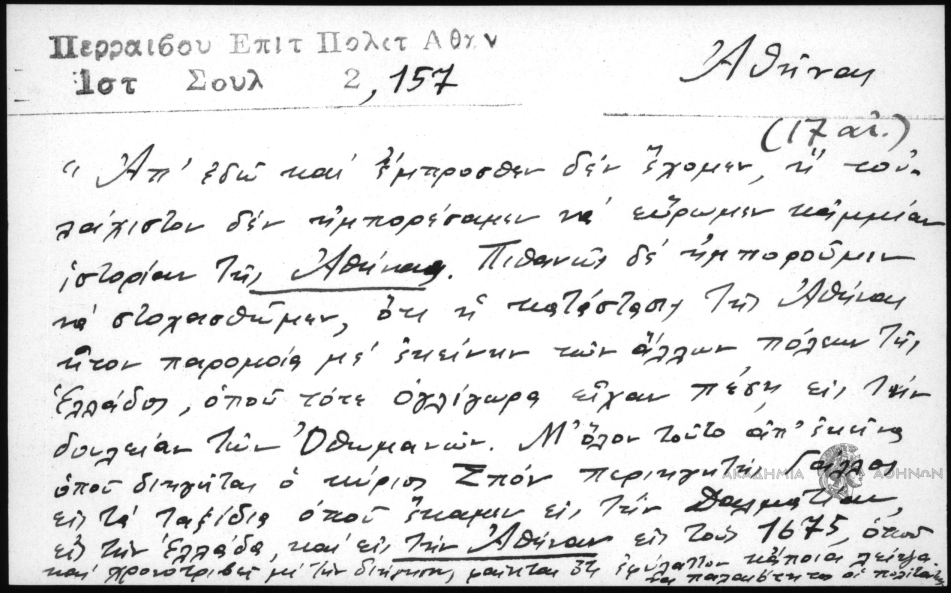 Περραιβου Επιτ Πολετ Αθην
Ιστ Σουλ 2, 157
Ἀθῆναι
(17 αἰ.)
"Ἀπ' ἐδῶ καὶ ἔμπροσθεν δὲν ἔχομεν, ἢ τοὐ-
λάχιστον δὲν ἠμπορέσαμεν νὰ εὕρωμεν καμμίαν
ἱστορίαν τῆς Ἀθήνας. Πιθανῶς δὲ ἠμποροῦμεν
νὰ στοχασθῶμεν, ὅτι ἡ κατάστασις τῆς Ἀθήνας
ἦτον παρομοία μὲ ἐκείνην τῶν ἄλλων πόλεων τῆς
Ἑλλάδος, ὁποῦ τότε ὀγλίγωρα εἶχαν πέση εἰς τὴν
δουλείαν τῶν Ὀθωμανῶν. Μ' ὅλον τοῦτο ἀπ' ἐκεῖνα
ὁποῦ διηγεῖται ὁ κύριος Σπὸν περιηγητὴς Γάλλος
εἰς τὰ ταξίδια ὁποῦ ἔκαμεν εἰς τὴν Δαλματίαν,
εἰς τὴν Ἑλλάδα, καὶ εἰς τὴν Ἀθήναν εἰς τοὺς 1675, ὁποῦ
καὶ χρονοτριβεῖ μὲ τὴν διήγησιν, φαίνεται ὅτι ἐφύλαττον κάποια λείψα-
να παλαιότητος οἱ πολῖται
ΑΚΑΔΗΜΙΑ ΑΘΗΝΩΝ